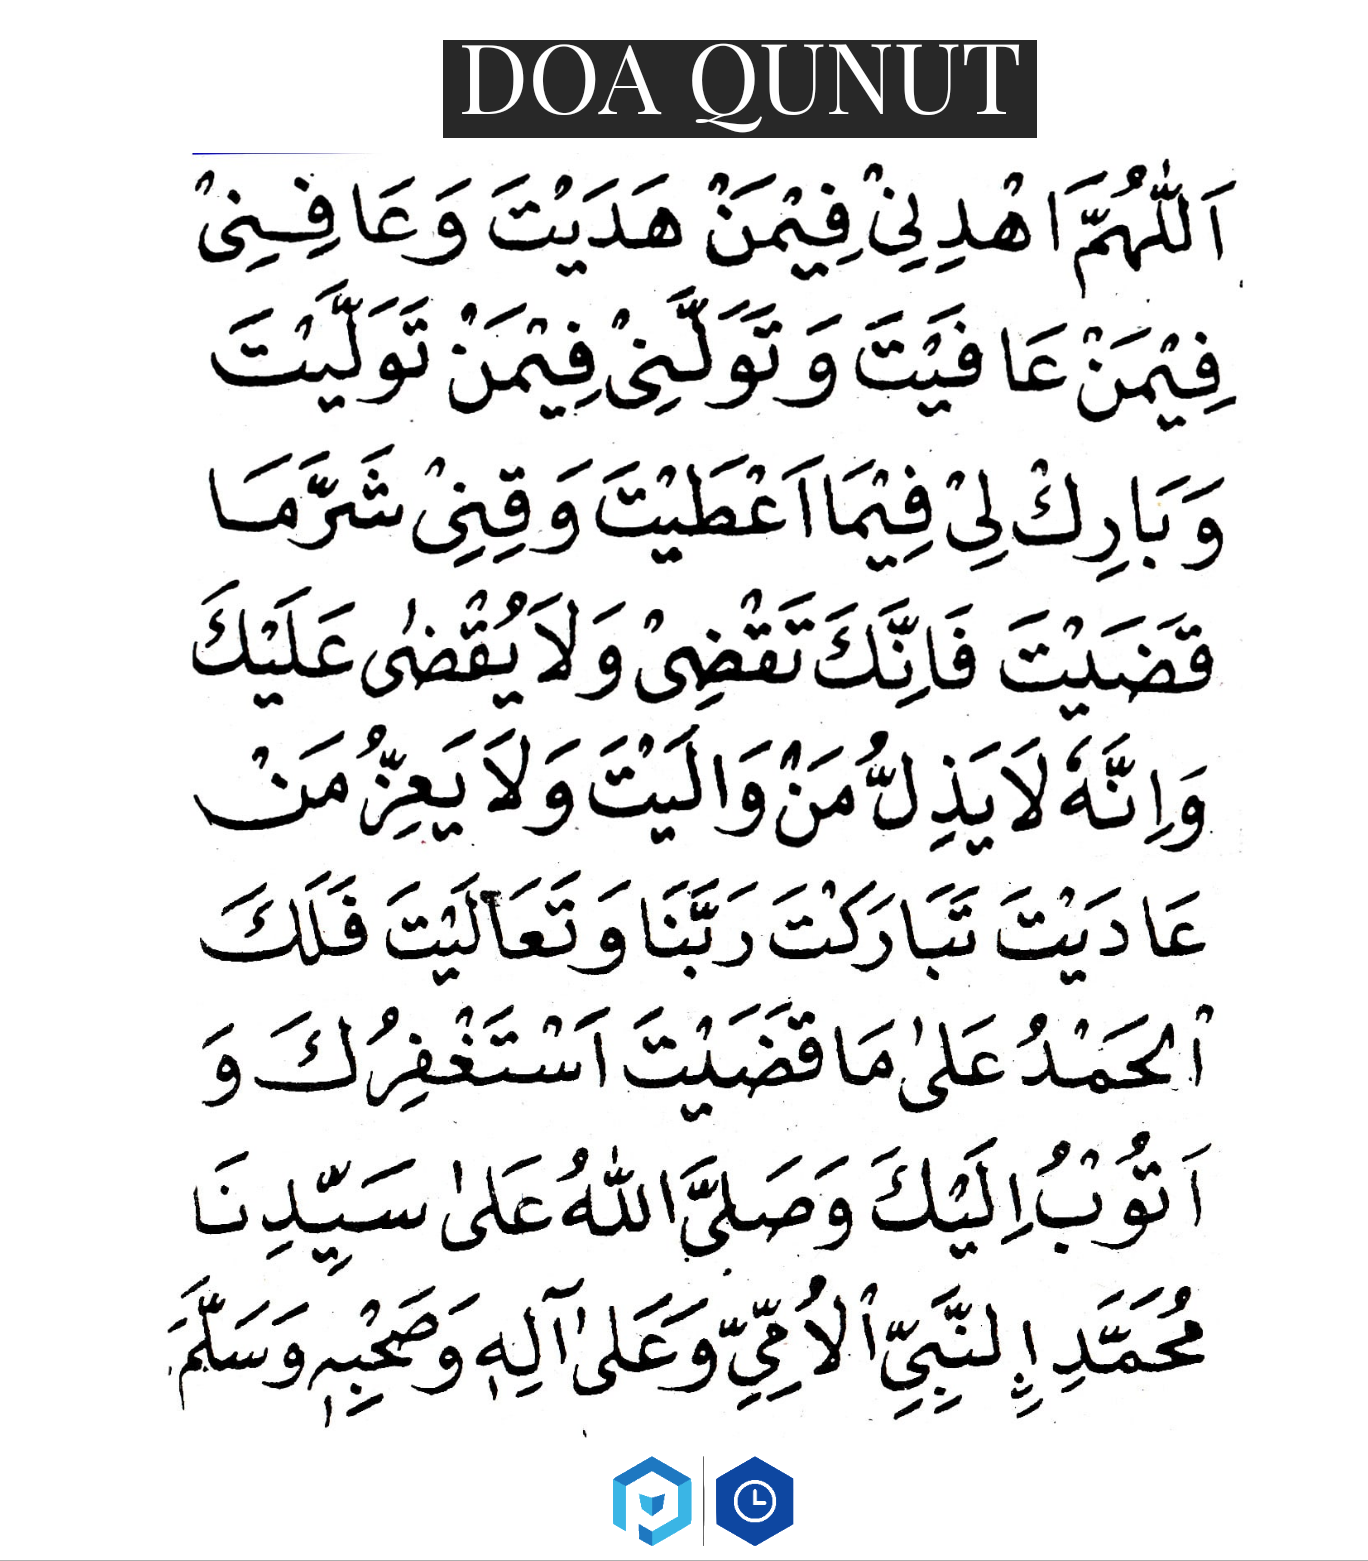 DOA QUNUT
اَللّٰهُمَّ اهْدِنِيْ فِيْمَنْ هَدَيْتَ وَعَافِنِيْ
فِيْمَنْ عَافَيْتَ وَتَوَلَّنِيْ فِيْمَنْ تَوَلَّيْتَ
وَبَارِكْ لِيْ فِيْمَا اَعْطَيْتَ وَقِنِيْ شَرَّمَا
قَضَيْتَ فَاِنَّكَ تَقْضِيْ وَلَا يُقْضٰى عَلَيْكَ
وَاِنَّهٗ لَا يَذِلُّ مَنْ وَالَيْتَ وَلَا يَعِزُّ مَنْ
عَادَيْتَ تَبَارَكْتَ رَبَّنَا وَتَعَالَيْتَ فَلَكَ
اْلحَمْدُ عَلٰى مَا قَضَيْتَ اَسْتَغْفِرُكَ وَ
اَتُوْبُ اِلَيْكَ وَصَلىَّ اللهُ عَلٰى سَيِّدِنَا
مُحَمَّدٍ اِلنَّبِيِّ اْلاُمِّيِّ وَعَلٰى آلِهٖ وَصَحْبِهٖ وَسَلَّمَ